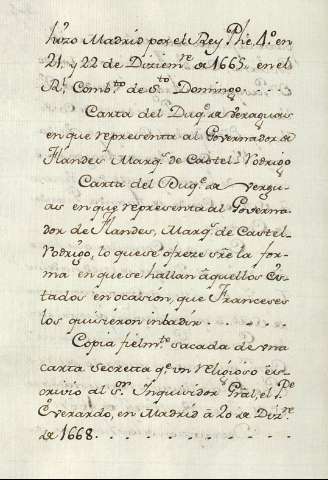 hizo Madrid por el Rey Phe. 4.º en
21 y 22 de Diziem.re de 1665 en el
Rl. Comb.to de S.to Domingo.
Carta del Duq.e de Veraguas
en que representa al Governador de
Flandes Marq.s de Castel-Rodrigo
Carta del Duq.e de Vergu-
as en que representa al Governa-
dor de Flandes, Marq.s de Castel-
Rodrigo, lo que se ofreze sre. la for-
ma en que se hallan aquellos Es-
tados en ocasion, que Franceses
los quisieron inbadir.
Copia fielm.te sacada de una
carta secretta q.e un religioso es-
crivio al S.or Inquisidor Gral, el P.e
Everardo, en Madrid à 20 de Diz.re
de 1668.